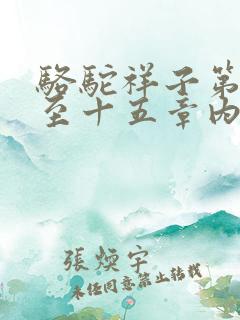 駱駝祥子第
至十五章內
張煐宇
未经同意禁止转载